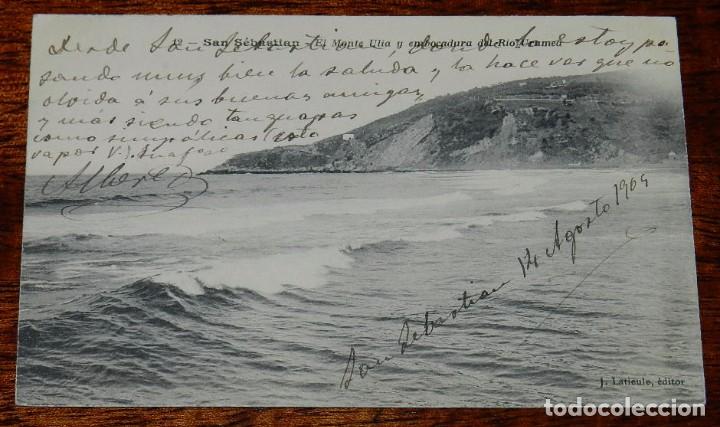 12 - San Sébastian - El Monte Ulia y embocadura del Rio Urumea
Desde San Sebastian, donde estoy pa-
sando muy bien la saluda y la hace ver que no
olvida á sus buenas amigas
y más siendo tan guapas
como simpáticas
vapor
Alberto
San Sebastian 14 Agosto 1905
J. Latieule, éditor
todocoleccion.net